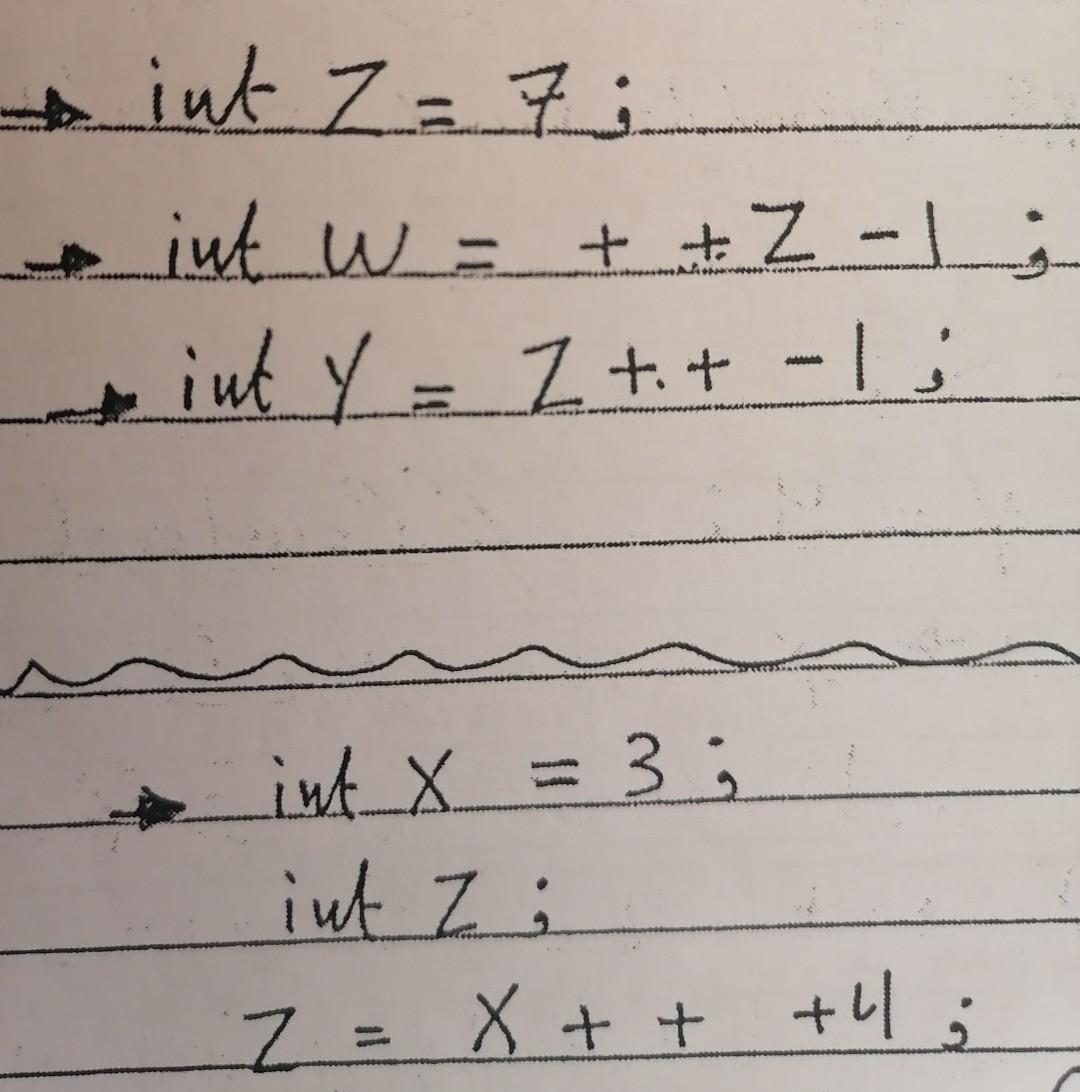 → int Z = 7 ;
→ int W = + + Z - 1 ;
→ int Y = Z + + - 1 ;
→ int X = 3 ;
int Z ;
Z = X + + + 4 ;